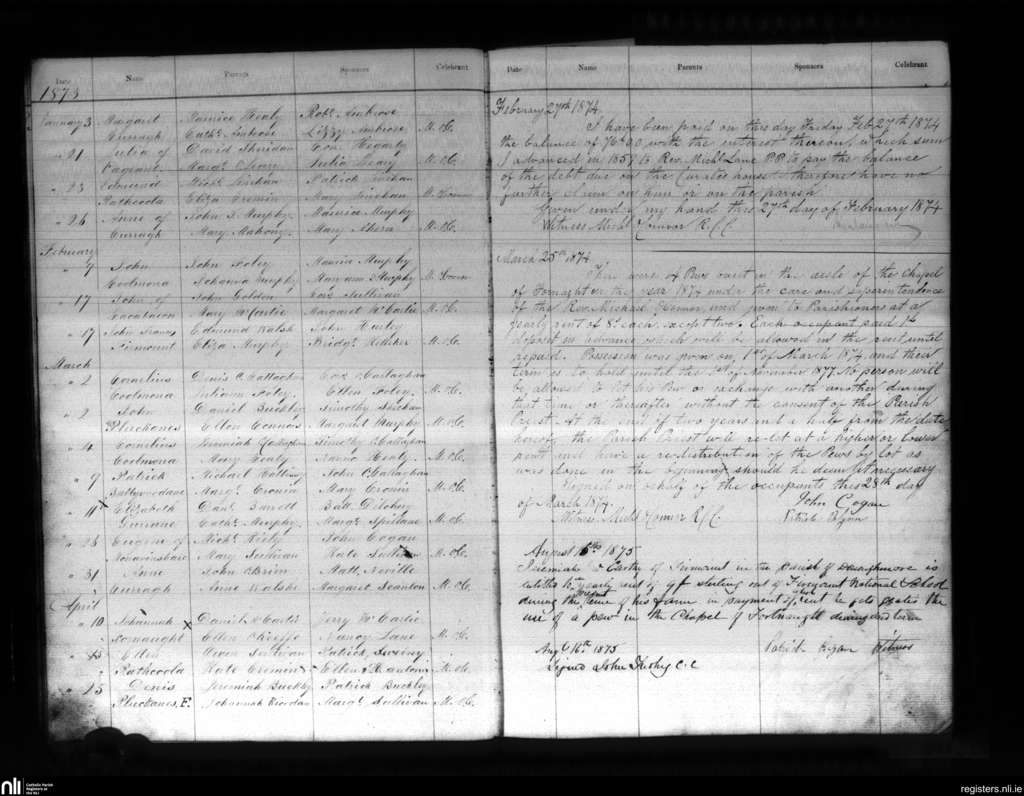 Date Name Parents Sponsors Celebrant
1873
January 3 Margaret Maurice Healy Robt. Ambrose
Curragh Cathe. Ambrose Lizzy Ambrose M. OC.
" 21 Julia of David Sheridan Con. Hegarty
Margt. Leary Julia Leary M. OC.
" 23 Edmund Michl. Linehan Patrick Linehan
Rathcoola Eliza Cremin Mary Linehan
" 26 Anne of John D. Murphy Maurice Murphy
Curragh Mary Mahony Mary Ahern M. OC.
February
" 7 John John Foley Maurice Murphy
Coolmona Johanna Murphy Maryann Murphy
" 17 John of John Golden Sullivan
Mary McCartie Margaret McCartie M. OC.
" 17 John Edmund Walsh John Hurley
Firmount Eliza Murphy Bridgt. Kelliher M. OC.
March
" 2 Cornelius Denis C. Callaghan Callaghan
Coolmona Foley Ellen Foley M. OC.
" 2 John Daniel Buckley Timothy Sheehan
Pluckanes Ellen Connors Margaret Murphy M. OC.
" 4 Cornelius Jeremiah Callaghan Timothy Callaghan
Coolmona Mary Healy Healy M. OC.
" 9 Patrick Michael John O'Callaghan
Margt. Cronin Mary Cronin M. OC.
" 11 x Elizabeth Danl. Barrett Batt.
Cathe. Murphy Margt. Spillane M. OC.
" 28 Eugene of Michl. Riely John Cogan
Mary Sullivan Kate Sullivan M. OC.
" 31 Anne John OBrien Matt. Neville
Curragh Anne Walshe Margaret Scanlon M. OC.
April
" 10 Johannah x Daniel McCartie Jerry McCartie
Fornaught Ellen OKeeffe Nancy Lane M. OC.
" 13 Ellen Owen Sullivan Patrick Sweeny
Rathcoola Kate Cremin Ellen M. OC.
" 13 Denis Jeremiah Buckley Patrick Buckley
Pluckanes, E. Johannah Riordan Margt. Sullivan M. OC.
Date Name Parents Sponsors Celebrant
February 27th 1874
I have been paid on this day Friday Feb. 27th 1874
the balance of with the interest thereon, which sum
I advanced in 1857 to Rev. Michl. Lane P.P. to pay the balance
of the debt due on the Curates house & therefore have no
further claim on him or on the parish
Given under my hand this 27th day of February 1874
Witness Michl. Connor R.C.C.
March 25th 1874
There were of Pews built in the aisle of the Chapel
of Fornaght in the year 1874 under the care and Superintendence
of the Rev. Michael Connor and given to Parishioners at a
yearly rent of 8s. each, except two. Each occupant paid
deposit in advance which will be allowed in the rent until
repaid. Possession was given on 1st of March 1874 and their
term is to hold until the 1st of November 1877. No person will
be allowed to let his Pew or exchange with another during
that time or thereafter without the consent of the Parish
Priest. At the end of two years and a half from the date
hereof the Parish Priest will re-let at a higher or lower
rent and have a re-distribution of the Pews by lot as
was done in the beginning should he deem it necessary
Signed on behalf of the occupants this 28th day
of March 1874. John Cogan
Witness Michl. Connor R.C.C. Patrick
August 16th 1875
Jeremiah of Firmount in the parish of Donoughmore is
entitled to yearly rent of sterling out of Firmount National School
during the present term of his farm in payment of which rent he gets gratis the
use of a pew in the Chapel of Fortnaught during said term
Augt 16th 1875 Patrick Witness
Signed John C.C
nli Catholic Parish Registers at the NLI
registers.nli.ie